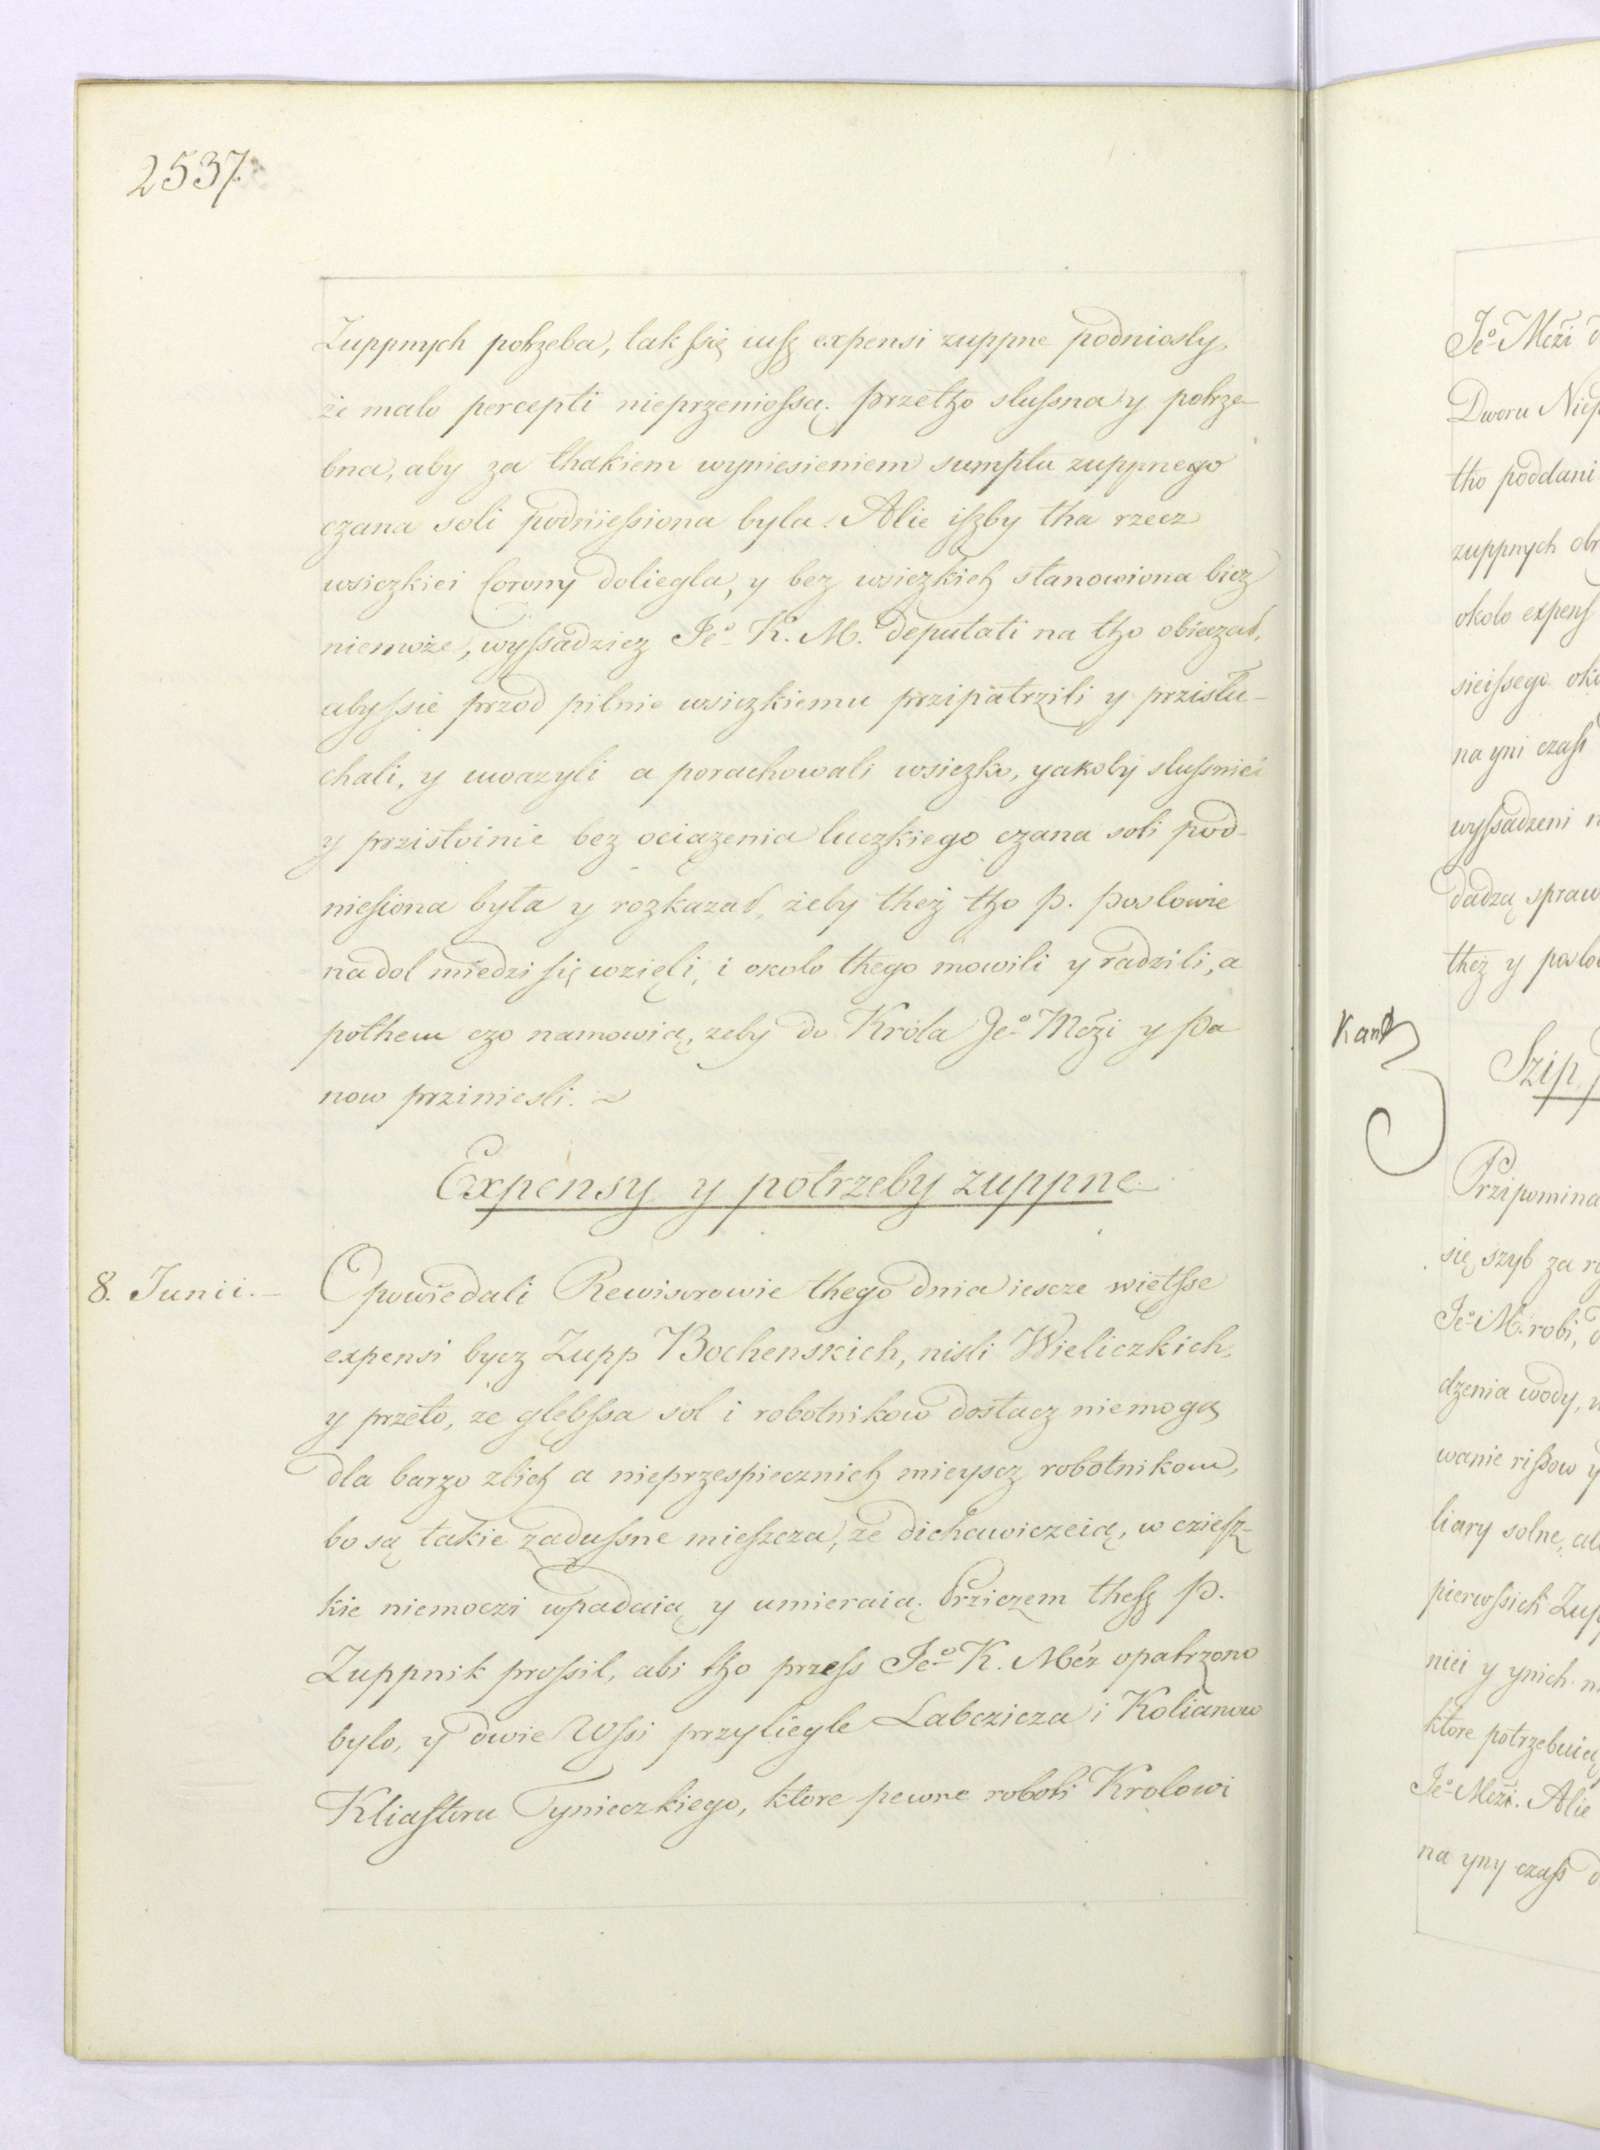 2537.
Zuppnych potrzeba, tak ssię iusz expensi zuppne podniosly,
że malo percepti nieprzeniossą. przetho slussna y potrze-
bna, aby za thakiem wyniesieniem sumptu zuppnego
czana soli podniessiona byla. Alie iszby tha rzecz
wsiczkiei Corony doliegla, y bez wsiczkich stanowiona bicz
niemoże, wyssadzicz Je⁰ K. M. deputati na tho obieczał,
abyssie przod pilnie wsiczkiemu przipatrzili y przisłu-
chali, y uwazyli a porachowali wsiczko, yakoby slussniei
y przistoinie bez ociązenia luczkiego czana soli pod-
niesiona była y rozkazał, żeby theż tho p. poslowie
na dol miedzi się wzięli, i okolo thego mowili y radzili, a
pothem czo namowią, zeby do Króla Je⁰ Mczi y Pa
now prziniesli.
Expensy y potrzeby zuppne
8. Junii.
Opowiedali Rewisorowie thego dnia iescze wietsse
expensi bycz Zupp Bochenskich, nisli Wieliczkich,
y przeto, ze glebssa sol i robotnikow dostacz niemogą
dla barzo zlich a nieprzespiecznich mieyscz robotnikom,
bo są takie zadussne mieszcza, że dichawiczeią, w cziesz-
kie niemoczi wpadaią y umieraią. Prziczem thesz P.
Zuppnik prossil, abi tho przess Je⁰ K. Mcź opatrzono
bylo, y dwie Wssi przyliegle Labczicza i Kolianow
Kliasztoru Tynieczkiego, ktore pewne roboti Krolowi
Je⁰ Mczi
Dworu
tho poddani
zuppnych
okolo expens
sieissego
na yni czass
wyssadzeni
dadzą
theż y
Szip
Przipomina
się szyb za
Je⁰ M. robi,
dzenia wody,
wanie rissow y
liary solne,
pierwssich
niei y ynich
ktore potrzebuią
Je⁰ Mczi. Alie
na yny czass